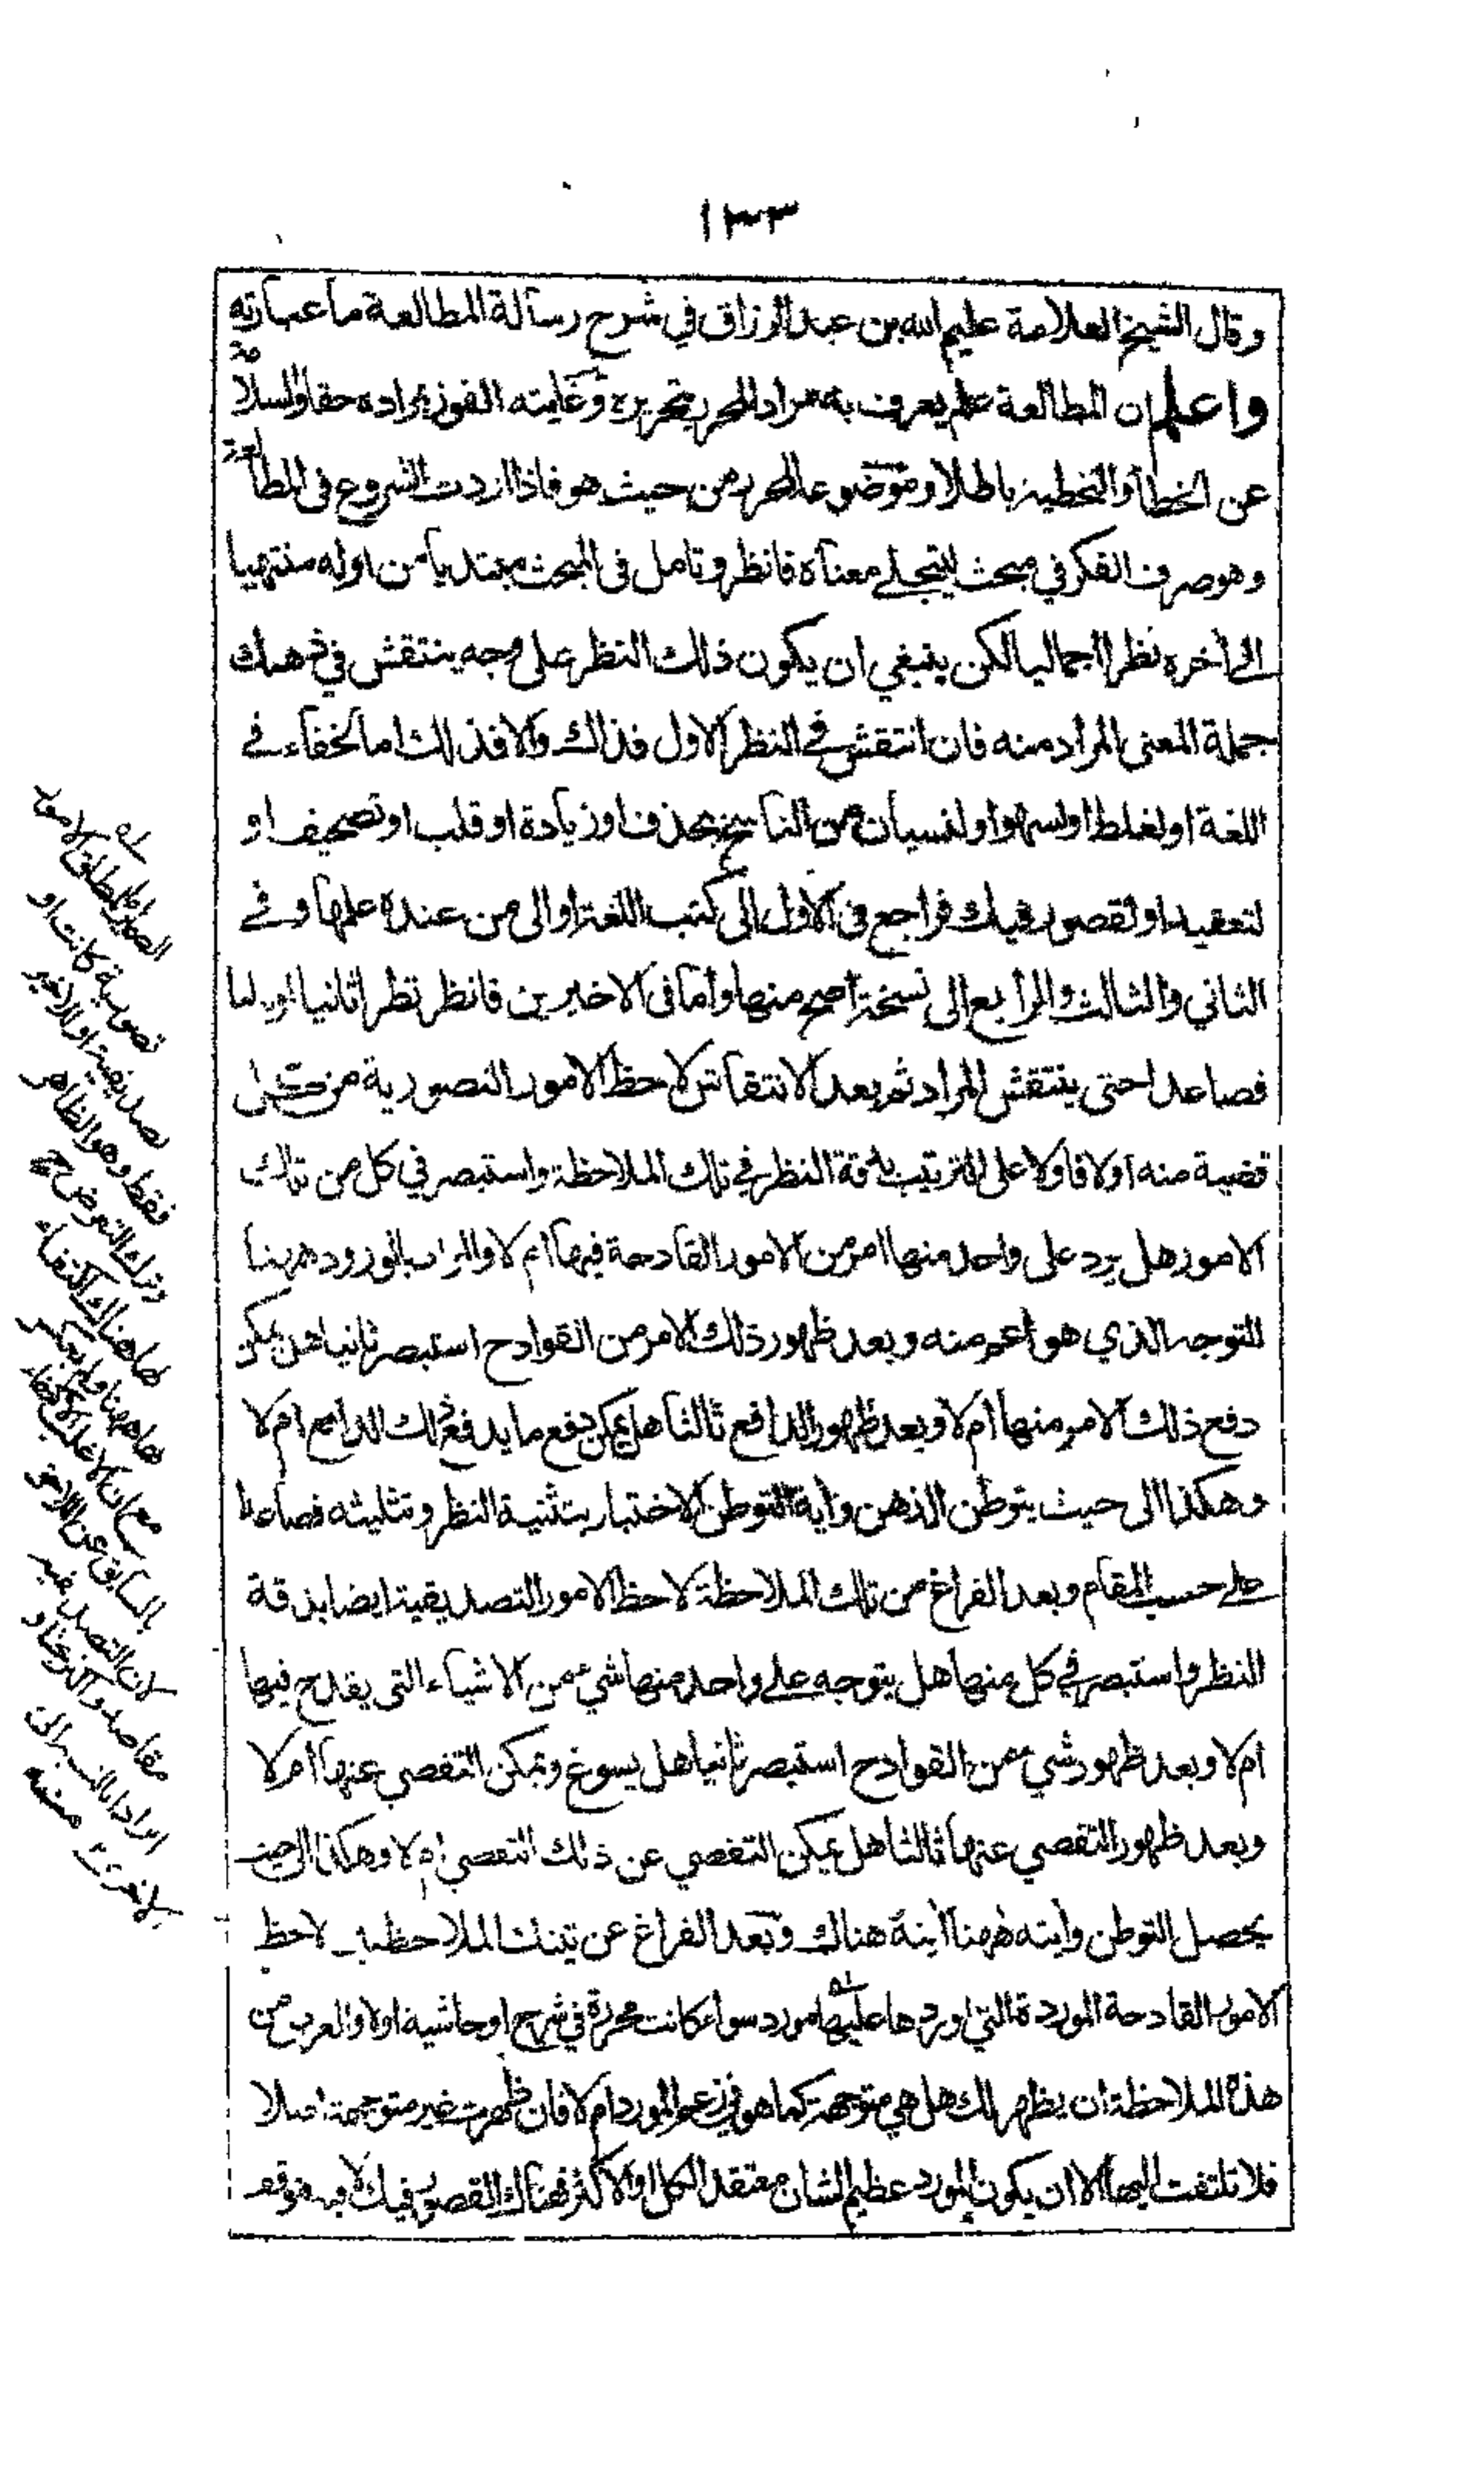 ١٣٣
وقال الشيخ العلامة عليم الله بن عبد الرزاق في شرح رسالة المطالعة ما عبارته
واعلم ان المطالعة علم يعرف به مراد المحرر بتحريره وغايته الفوز بمراده حقا والسلامة
عن الخطأ والتخطية باطلا وموضوعه المحرر من حيث هو فاذا اردت الشروع في المطالعة
وهو صرف الفكر في مبحث ليتجلى معناه فانظر وتامل في المبحث مبتديا من اوله منتهيا
الى آخره نظرا اجماليا لكن ينبغي ان يكون ذلك النظر على وجه ينتقش في ذهنك
جملة المعنى المراد منه فان انتقش في النظر الاول فذاك والا فذلك اما لخفاء في
اللغة او لغلط او لسهو او لنسيان من الناسخ بحذف او زيادة او قلب او تصحيف او
لتعقيد او لقصور فيك فراجع في الاول الى كتب اللغة او الى من عنده علمها وفي
الثاني والثالث والرابع الى نسخة اصح منها واما في الاخيرين فانظر نظرا ثانيا او ثالثا
فصاعدا حتى ينتقش المراد ثم بعد الانتقاش لاحظ الامور التصورية من كل
قضية منه اولا فاولا على الترتيب بدقة النظر في تلك الملاحظة واستبصر في كل من تلك
الامور هل يرد على واحد منها امر من الامور القادحة فيها ام لا والمراد بالورود ههنا
التوجه الذي هو اعم منه وبعد ظهور ذلك الامر من القوادح استبصر ثانيا هل يمكن
دفع ذلك الامر منها ام لا وبعد ظهور الدافع ثالثا هل يمكن دفع ما يدفع ذلك الدافع ام لا
وهكذا الى حيث يتوطن الذهن وآية التوطن الاختبار بتثنية النظر وتثليثه فصاعدا
على حسب المقام وبعد الفراغ من تلك الملاحظة لاحظ الامور التصديقية ايضا بدقة
النظر واستبصر في كل منها هل يتوجه على واحد منها شيء من الاشياء التي يقدح فيها
ام لا وبعد ظهور شيء من القوادح استبصر ثانيا هل يسوغ ويمكن التفصي عنها ام لا
وبعد ظهور التفصي عنها ثالثا هل يمكن التفصي عن ذلك التفصي ام لا وهكذا الى حيث
يحصل التوطن وآيته ههنا آيته هناك وبعد الفراغ عن تينك الملاحظتين لاحظ
الامور القادحة الموردة التي اوردها عليها مورد سواء كانت محررة في شرح او حاشية اولا والغرض من
هذه الملاحظة ان يظهر لك هل هي متوجهة كما هو في زعم المورد ام لا فان ظهرت غير متوجهة اصلا
فلا تلتفت اليها الا ان يكون المورد عظيم الشان معتقد الكل او الاكثر فهناك القصور فيك لا فيه فوقع
تصورية كانت او
تصديقية او الاخير
فقط وهو الظاهر
وترك التعرض
ههنا
مع ان
السابق عن اللاحق
لان التصديقية
مقاصد
منه